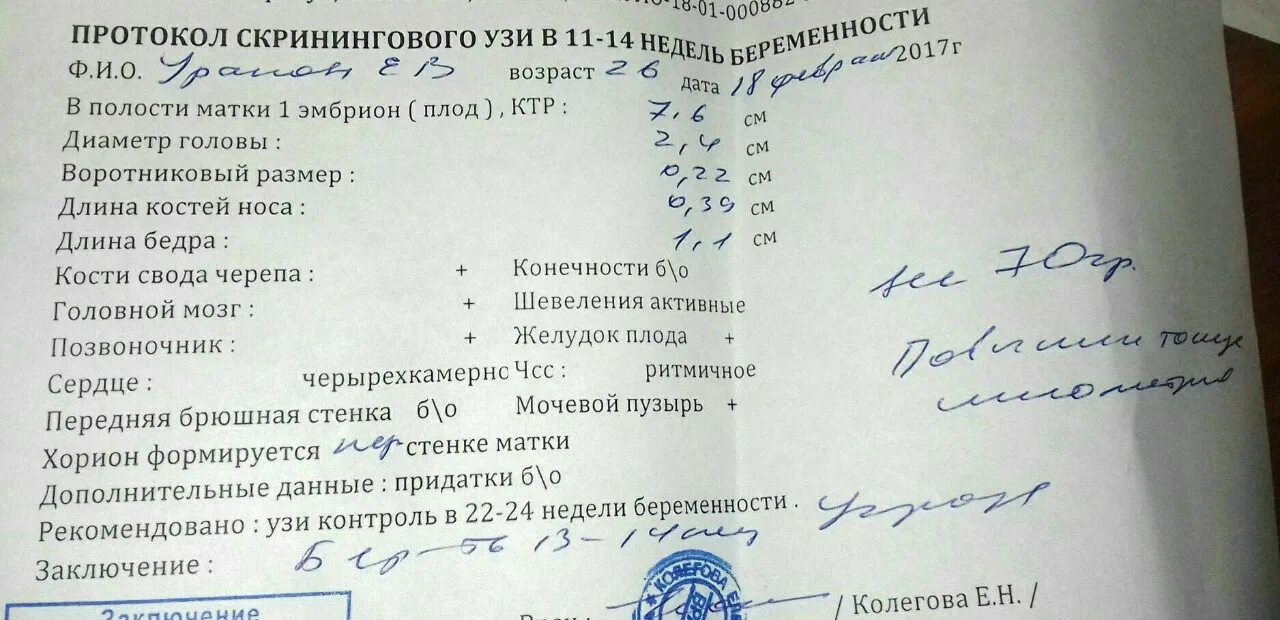 18-01-000882
ПРОТОКОЛ СКРИНИНГОВОГО УЗИ В 11-14 НЕДЕЛЬ БЕРЕМЕННОСТИ
Ф.И.О. Е В возраст 26 дата 18 февраля 2017г
В полости матки 1 эмбрион ( плод ) , КТР : 7,6 см
Диаметр головы : 2,4 см
Воротниковый размер : 0,22 см
Длина костей носа : 0,39 см
Длина бедра : 1,1 см
Кости свода черепа : + Конечности б\о
вес 70гр.
Головной мозг : + Шевеления активные
Позвоночник : + Желудок плода +
Повышен тонус
Сердце : черырехкамернс Чсс : ритмичное
миометрия
Передняя брюшная стенка б\о Мочевой пузырь +
Хорион формируется пер стенке матки
Дополнительные данные : придатки б\о
Рекомендовано : узи контроль в 22-24 недели беременности .
Заключение : Бер-ть 13-14 нед Угроза
Заключение
КОЛЕГОВА
/ Колегова Е.Н. /